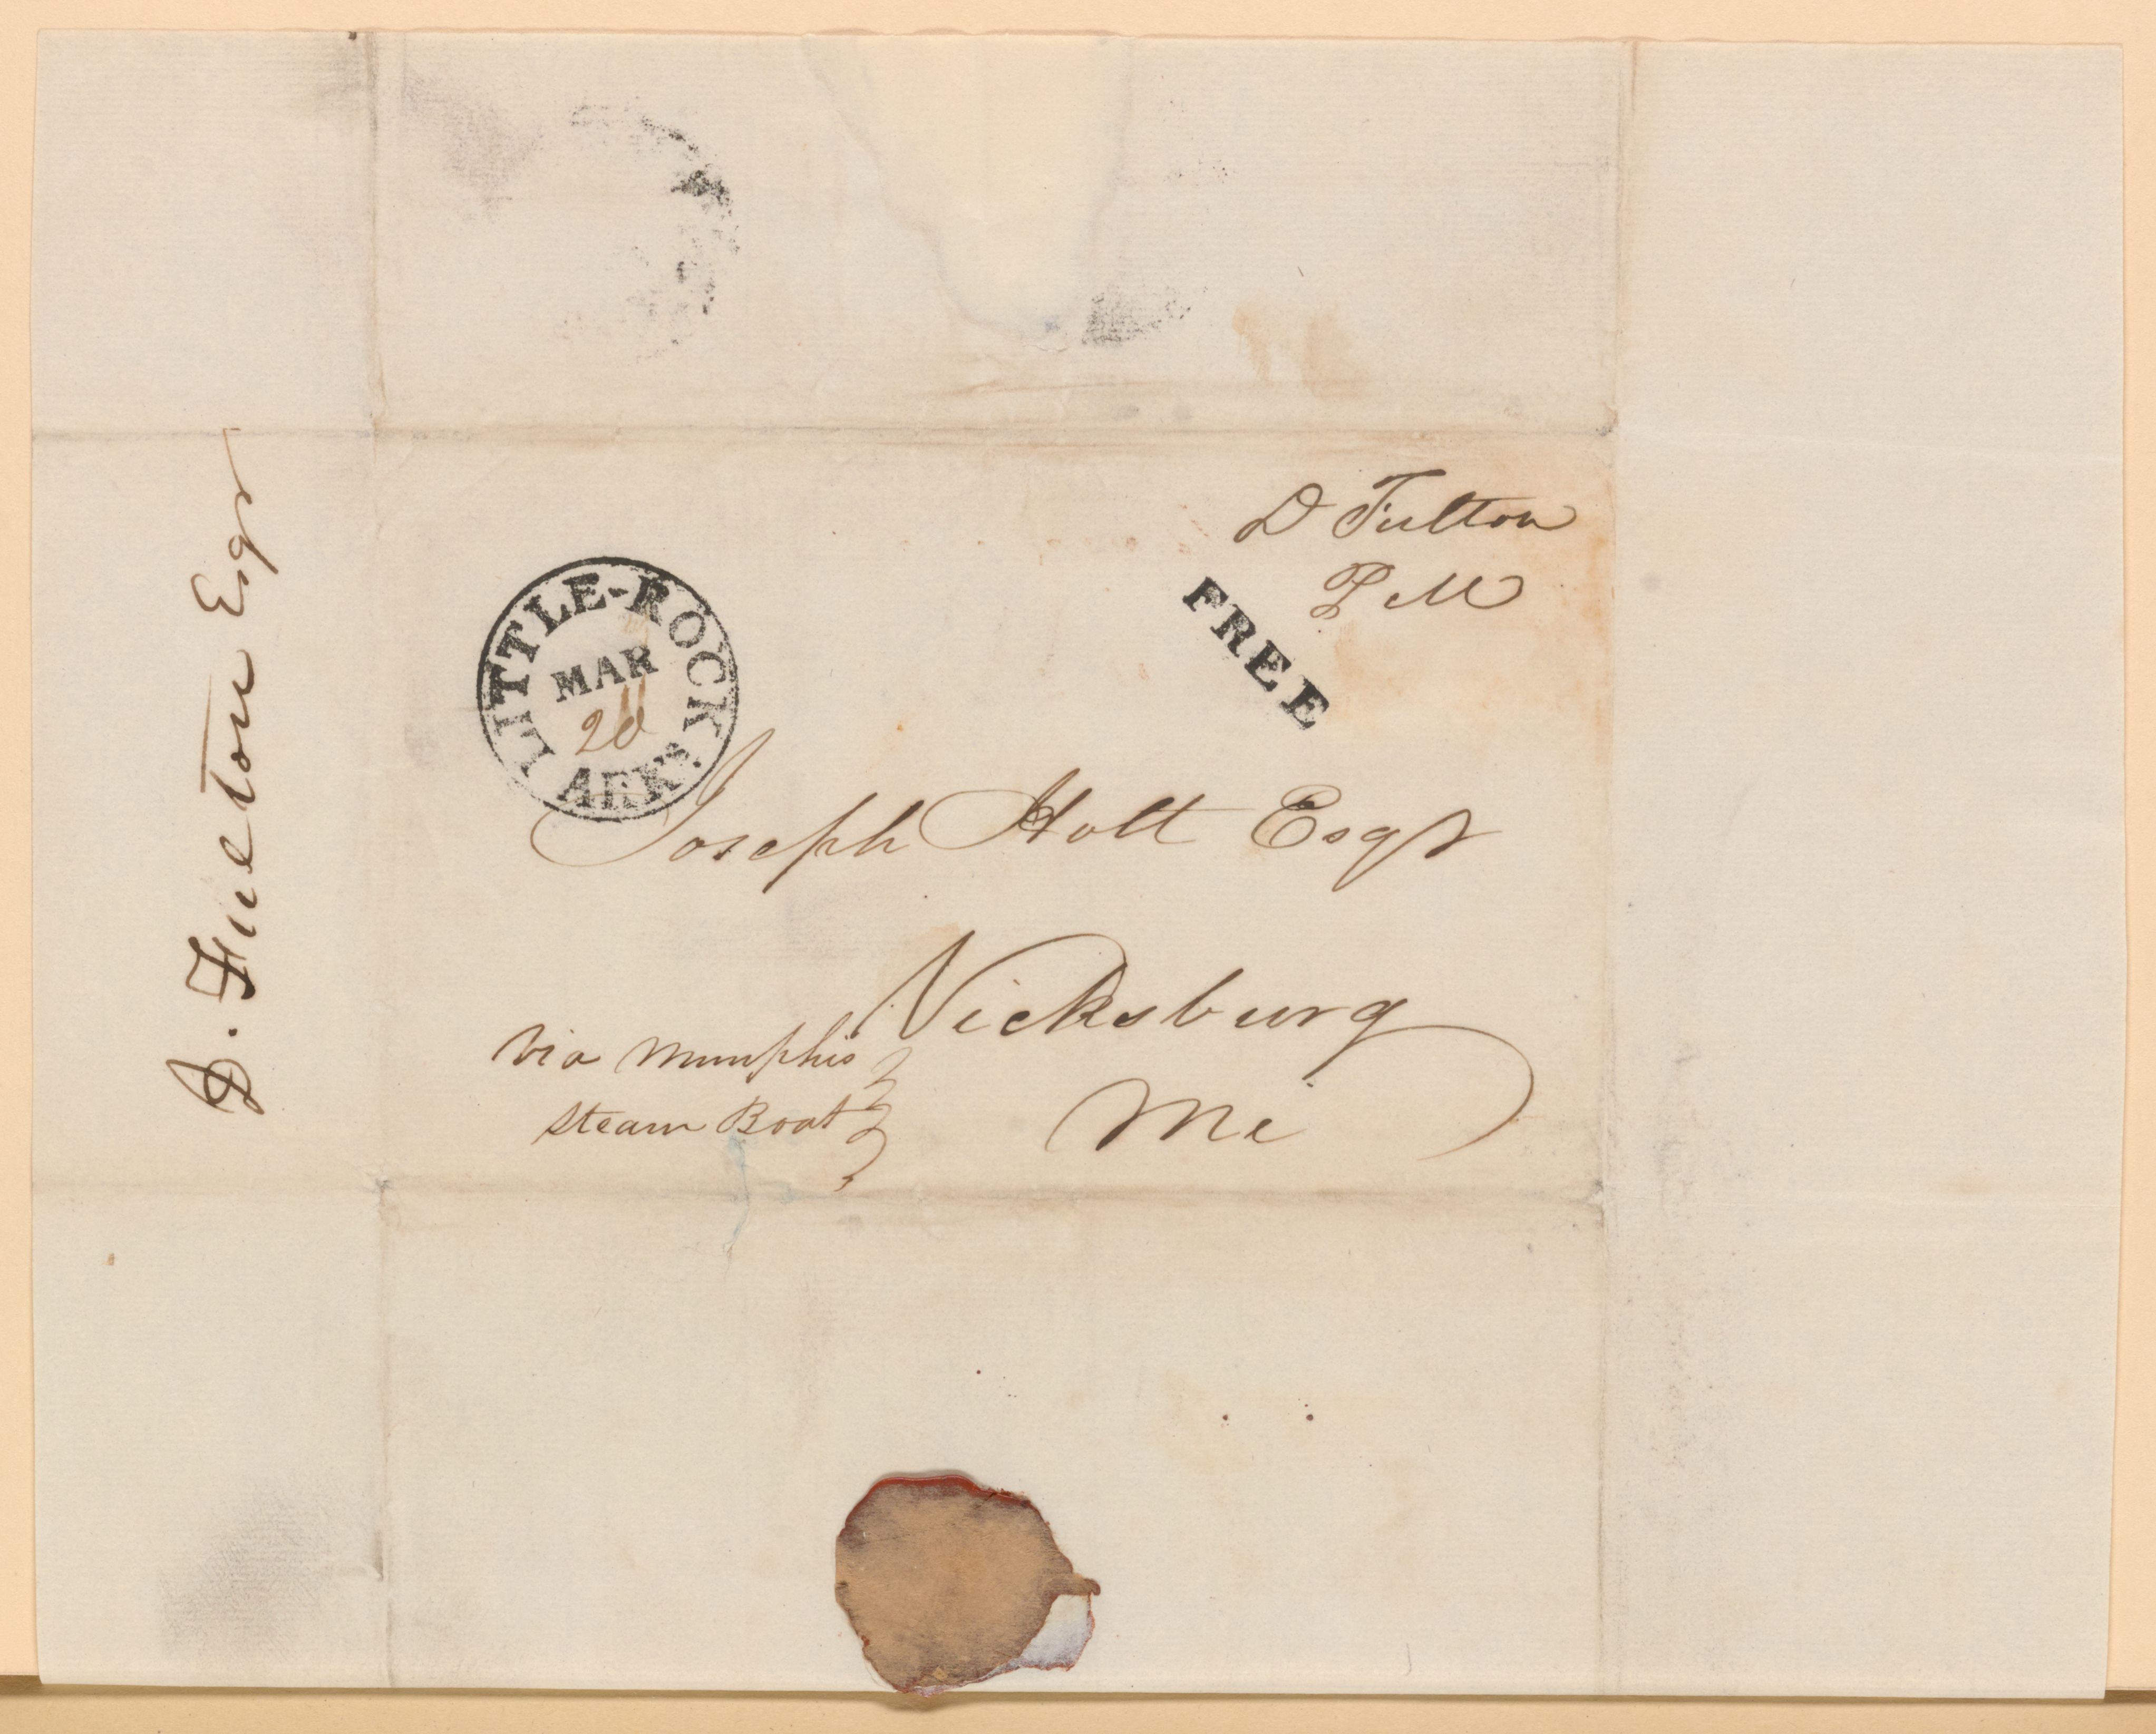 D Fulton
P M
FREE
LITTLE-ROCK
MAR
20
ARKS.
Joseph Holt Esqr
Vicksburg
Mi
Via Memphis
Steam Boat
D. Fulton Esqr